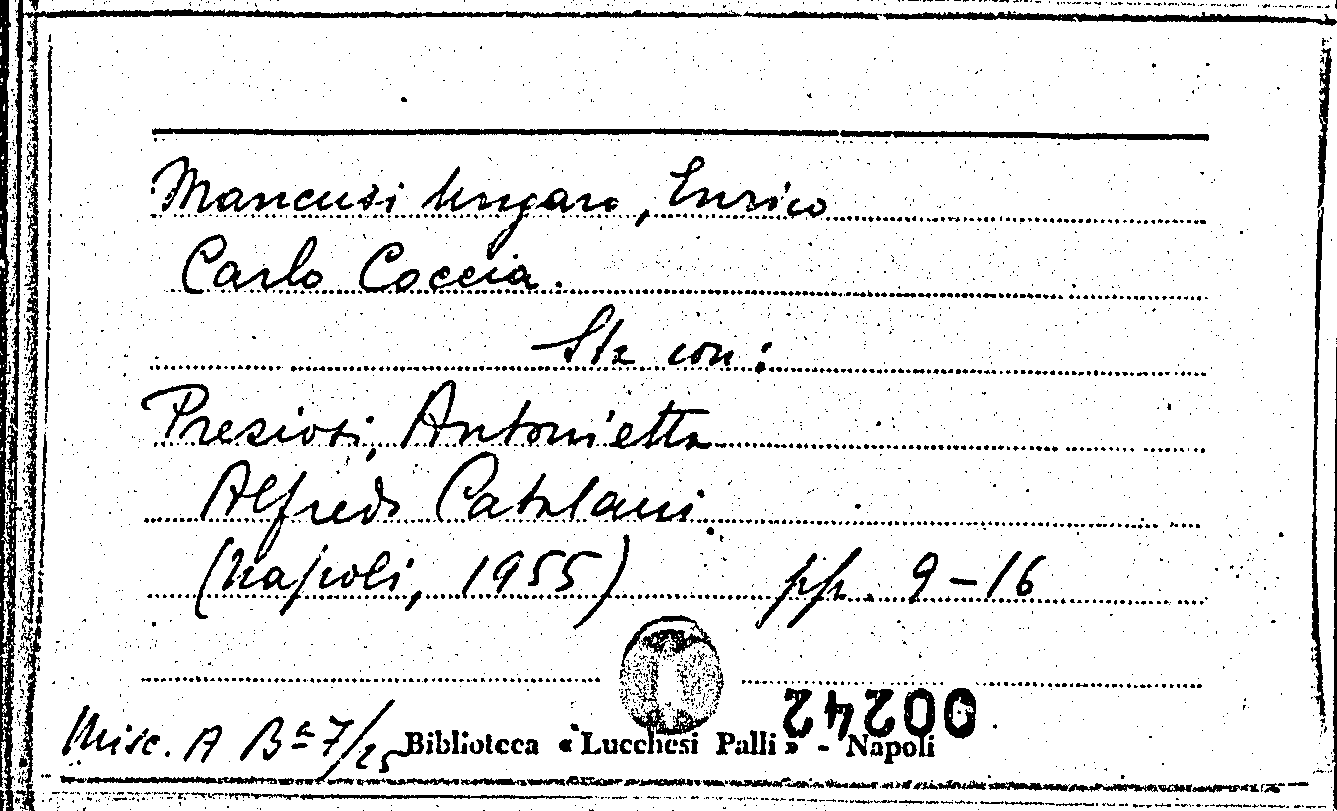 Mancusi Ungaro, Enrico
Carlo Coccia.
Sta con:
Preziosi, Antonietta
Alfredo Catalani.
(Napoli, 1955) pp. 9-16
00242
Misc. A Bª 7/25
Biblioteca « Lucchesi Palli » - Napoli